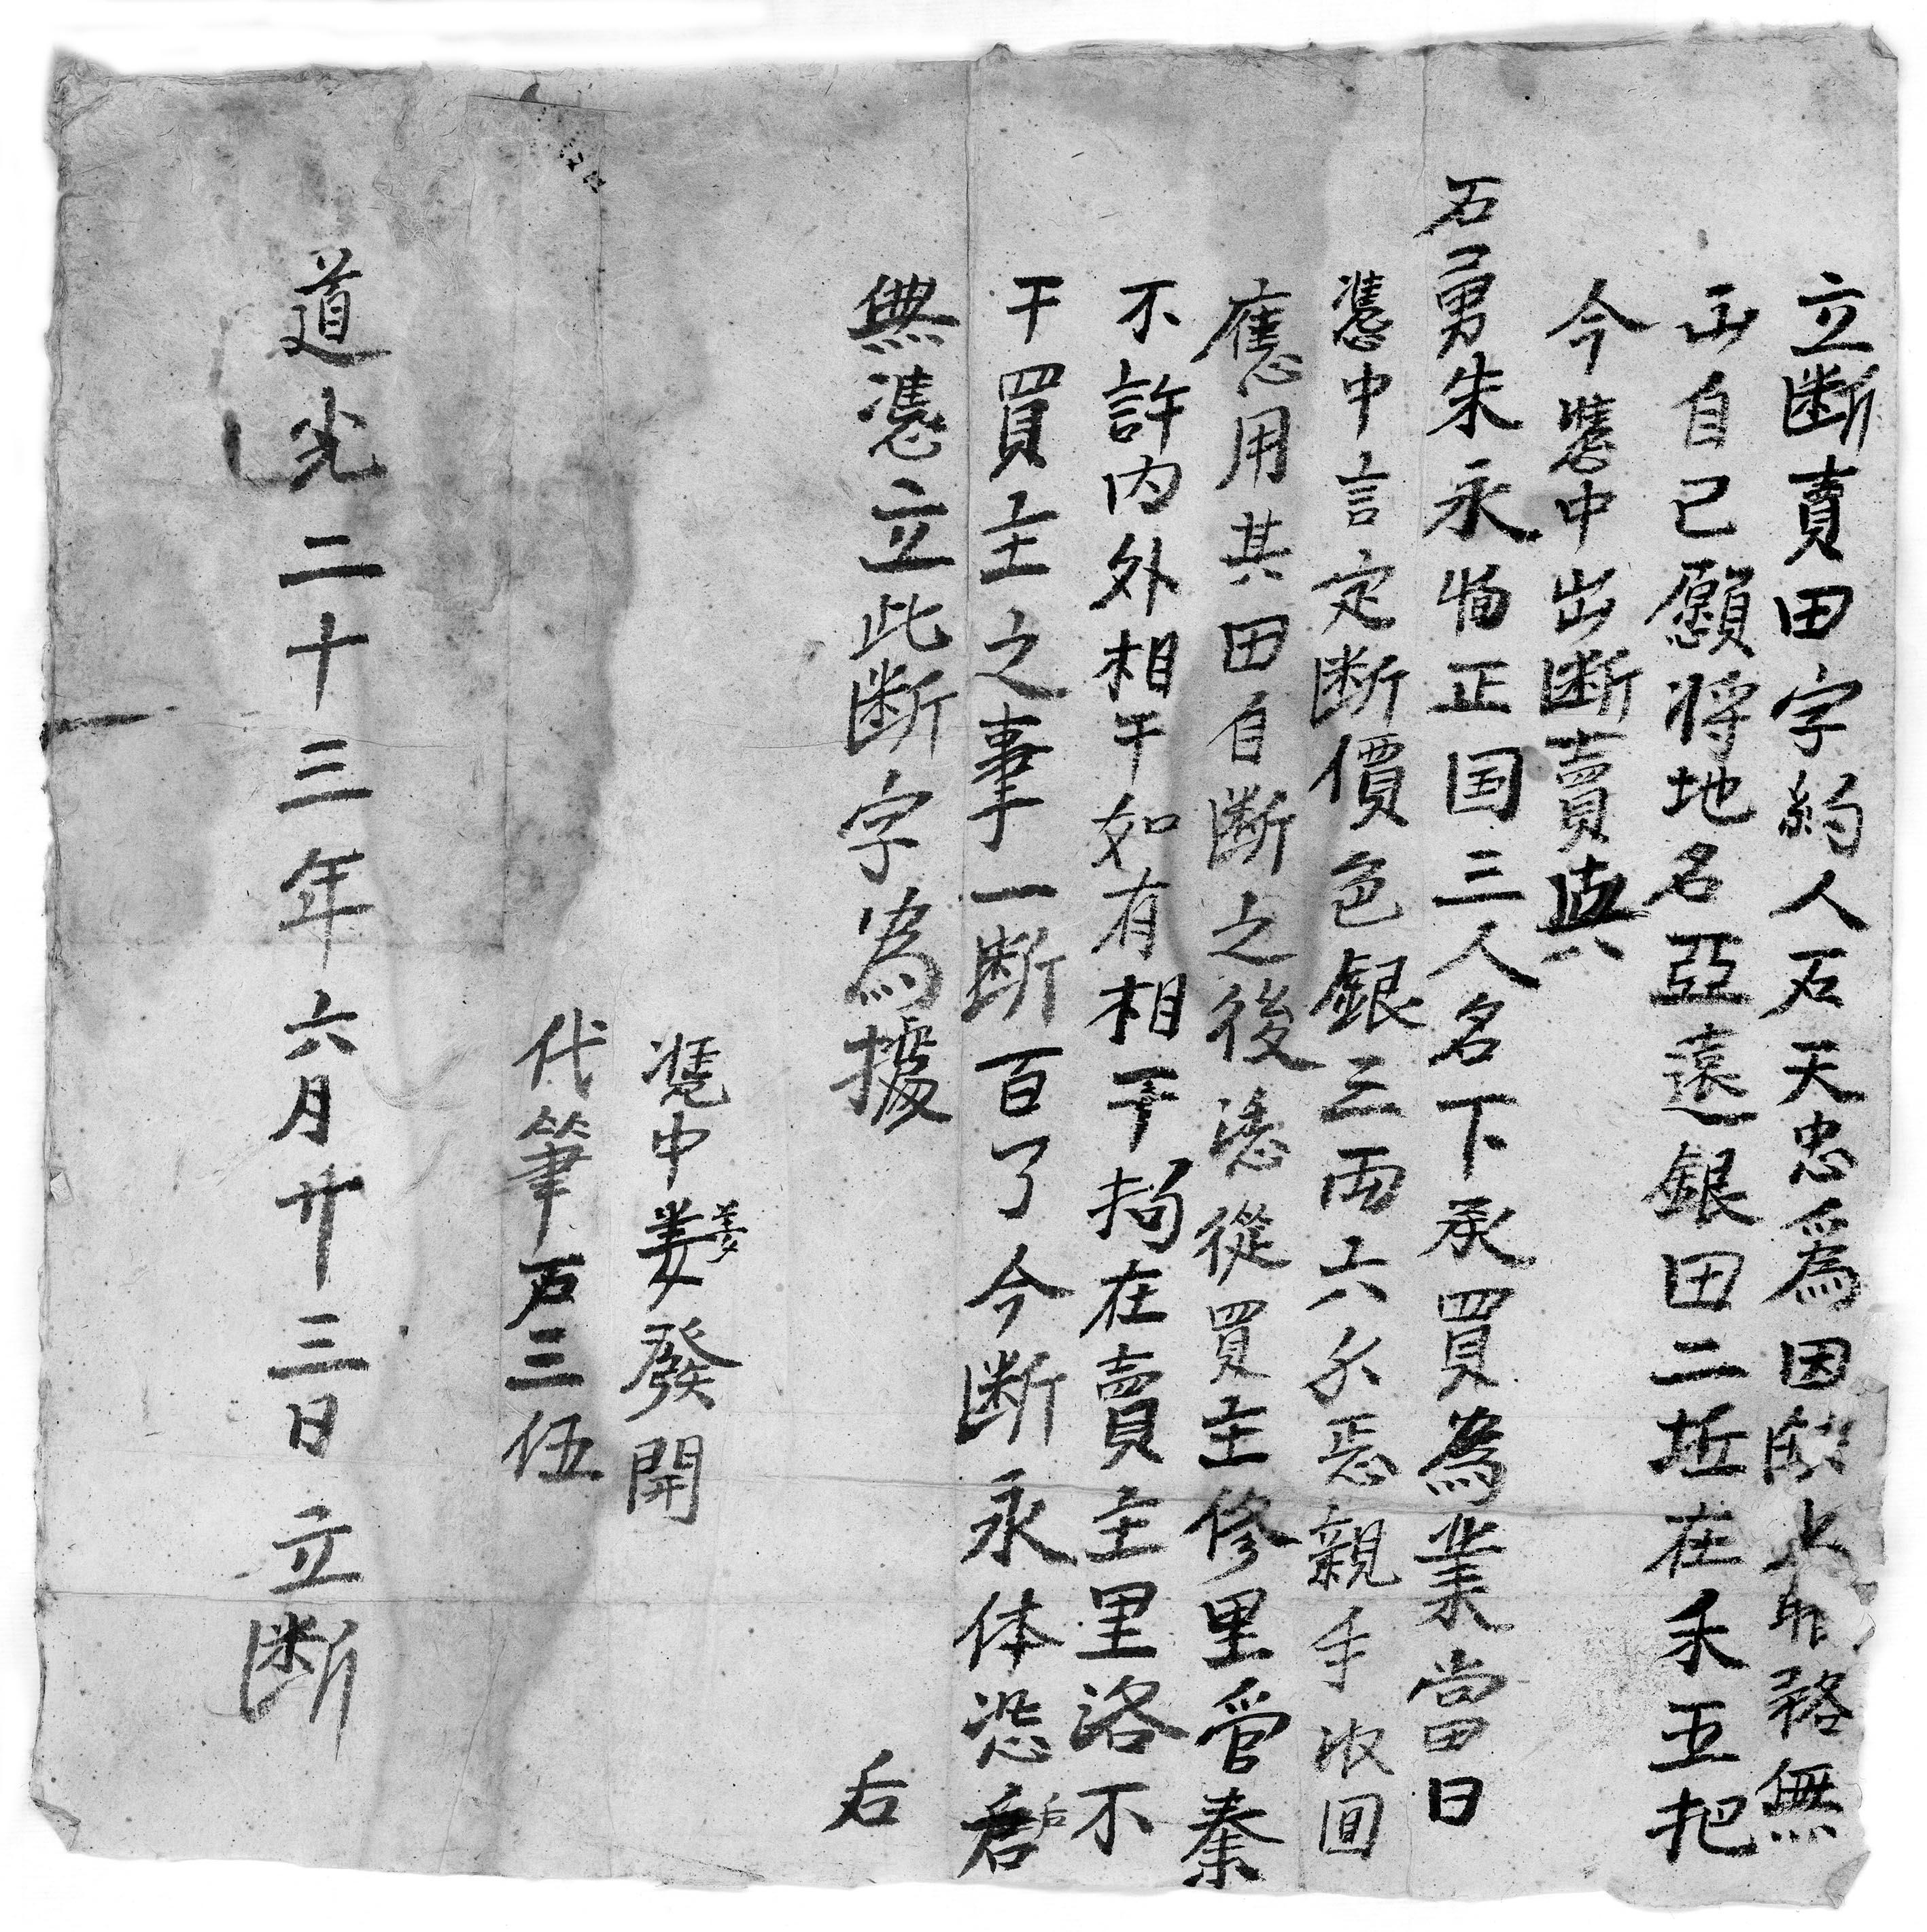 立断賣田字約人石天忠爲因缺少用務無
出自己願將地名亞遠銀田二坵在禾五把
今憑中出断賣與
石勇朱永物正国三人名下承買為業當日
憑中言定断價色銀三両六分恁親手收囬
應用其田自断之後憑從買主修里管秦
不許内外相干如有相干拘在賣主里洛不
干買主之事一断百了今断永体恐后
無憑立此断字為據
憑中姜發開
代筆石三伍
道光二十三年六月廿三日立断
右